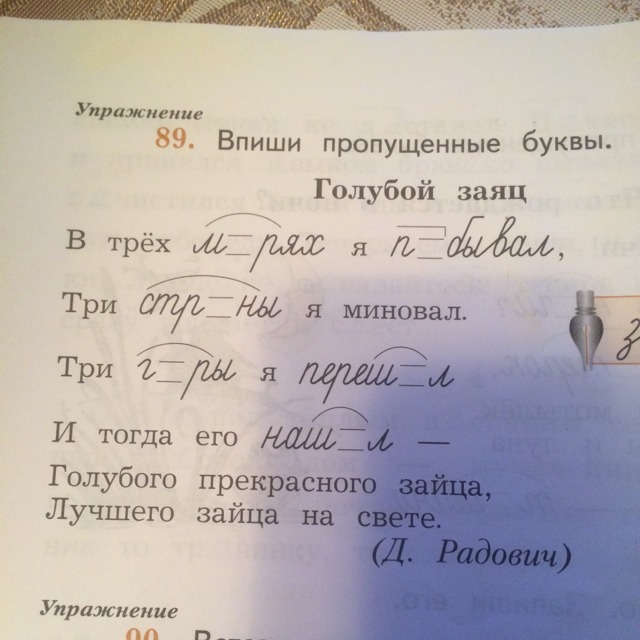 Упражнение
89. Впиши пропущенные буквы.
Голубой заяц
В трёх м_рях я п_бывал,
Три стр_ны я миновал.
Три г_ры я переш_л
И тогда его наш_л —
Голубого прекрасного зайца,
Лучшего зайца на свете.
(Д. Радович)
Упражнение
90.